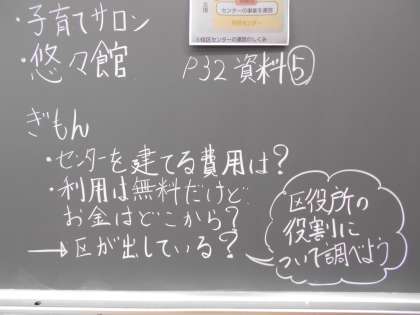 ・子育てサロン
・悠々館
P32 資料⑤
センターの事業を運営
住区センターの運営のしくみ
ぎもん
・センターを建てる費用は?
・利用は無料だけど
お金はどこから?
→区が出している?
区役所の
役割に
ついて調べよう